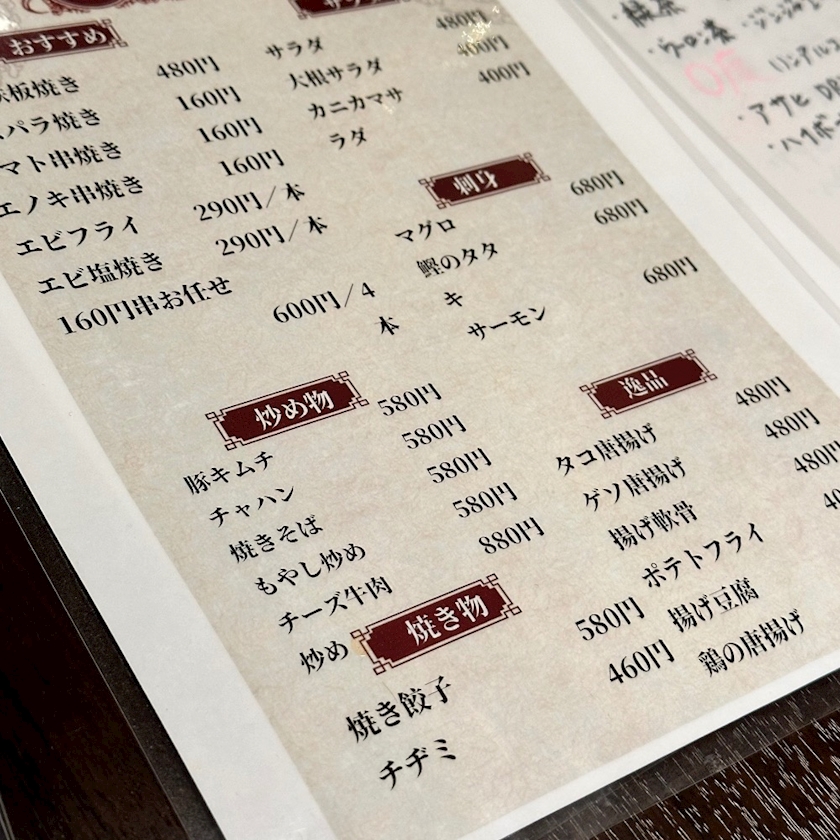 おすすめ
板焼き 480円
パラ焼き 160円
マト串焼き 160円
エノキ串焼き 160円
エビフライ 290円／本
エビ塩焼き 290円／本
160円串お任せ 600円／4
本
サラダ 480円
大根サラダ 400円
カニカマサ 400円
ラダ
刺身
マグロ 680円
鰹のタタ 680円
キ
サーモン 680円
炒め物
豚キムチ 580円
チャハン 580円
焼きそば 580円
もやし炒め 580円
チーズ牛肉 880円
炒め
焼き物
焼き餃子 580円
チヂミ 460円
逸品
タコ唐揚げ 480円
ゲソ唐揚げ 480円
揚げ軟骨 480円
ポテトフライ
揚げ豆腐
鶏の唐揚げ
・ウーロン茶
・アサヒ